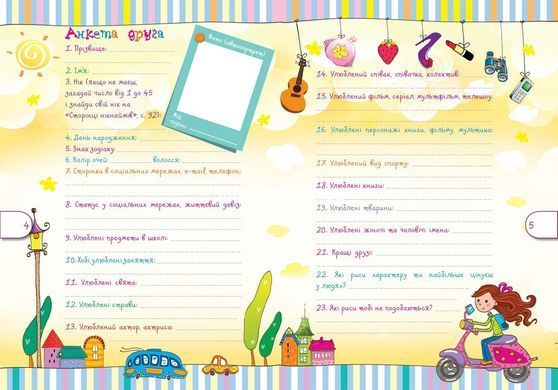 Анкета друга
1. Прізвище:
2. Ім'я:
3. Нік (якщо не маєш,
загадай число від 1 до 45
і знайди свій нік на
«Сторінці нікнеймів», с. 92):
4. День народження:
5. Знак зодіаку:
6. Колір очей: волосся:
7. Сторінки в соціальних мережах, e-mail, телефон:
8. Статус у соціальних мережах, життєвий девіз:
9. Улюблені предмети в школі:
10. Хобі, улюблені заняття:
11. Улюблені свята:
12. Улюблені страви:
13. Улюблений актор, актриса:
4
Фото (автопортрет)
Мій
підпис:
14. Улюблений співак, співачка, колектив:
15. Улюблений фільм, серіал, мультфільм, телешоу:
16. Улюблені персонажі книги, фільму, мультика:
17. Улюблений вид спорту:
18. Улюблені книги:
19. Улюблені тварини:
20. Улюблені жіночі та чоловічі імена:
21. Кращі друзі:
22. Які риси характеру ти найбільше цінуєш
у людях?
23. Які риси тобі не подобаються?
5